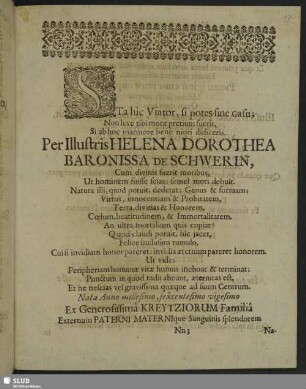 STa hic Viator, si potes sine casu;
Non leve tibi moræ pretium fuerit,
Si ab hoc marmore bene mori disficeris.
Per Illustris HELENA DOROTHEA
BARONISSA DE SCHWERIN,
Cum divinis fuerit moribus,
Ut hominem fuisse scias: semel mori debuit.
Natura illi, quod potuit, dederat: Genus & formam;
Virtus, innocentiam & Probitatem,
Terra, divitias & Honorem,
Cœlum, beatitudinem, & Immortalitatem.
An ultra mortalium quis capiat?
Quod claudi potuit, hic jacet,
Felice inclusum tumulo,
Cui si invidiam honor pareret: invidia æternum pareret honorem.
Ut vides
Peripheriam humanæ vitæ humus inchoat & terminat:
Punctum in quod radii abeunt, æternitas est,
Et ne nescias vel gravissima quæque ad suum Centrum.
Nata Anno millesimo, sexcentesimo vigesimo
Ex Generosissima KREYTZIORUM Familiâ
Externum PATERNI MATERNIque Sanguinis splendorem
Nn 3 Na-
SLUB